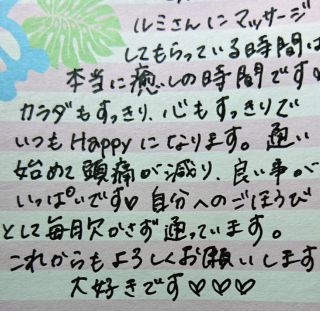 ルミさんにマッサージ
してもらっている時間は
本当に癒しの時間です♡
カラダもすっきり、心もすっきりで
いつもHappyになります。通い
始めて頭痛が減り、良い事が
いっぱいです♡自分へのごほうび
として毎月欠かさず通っています。
これからもよろしくお願いします
大好きです♡♡♡